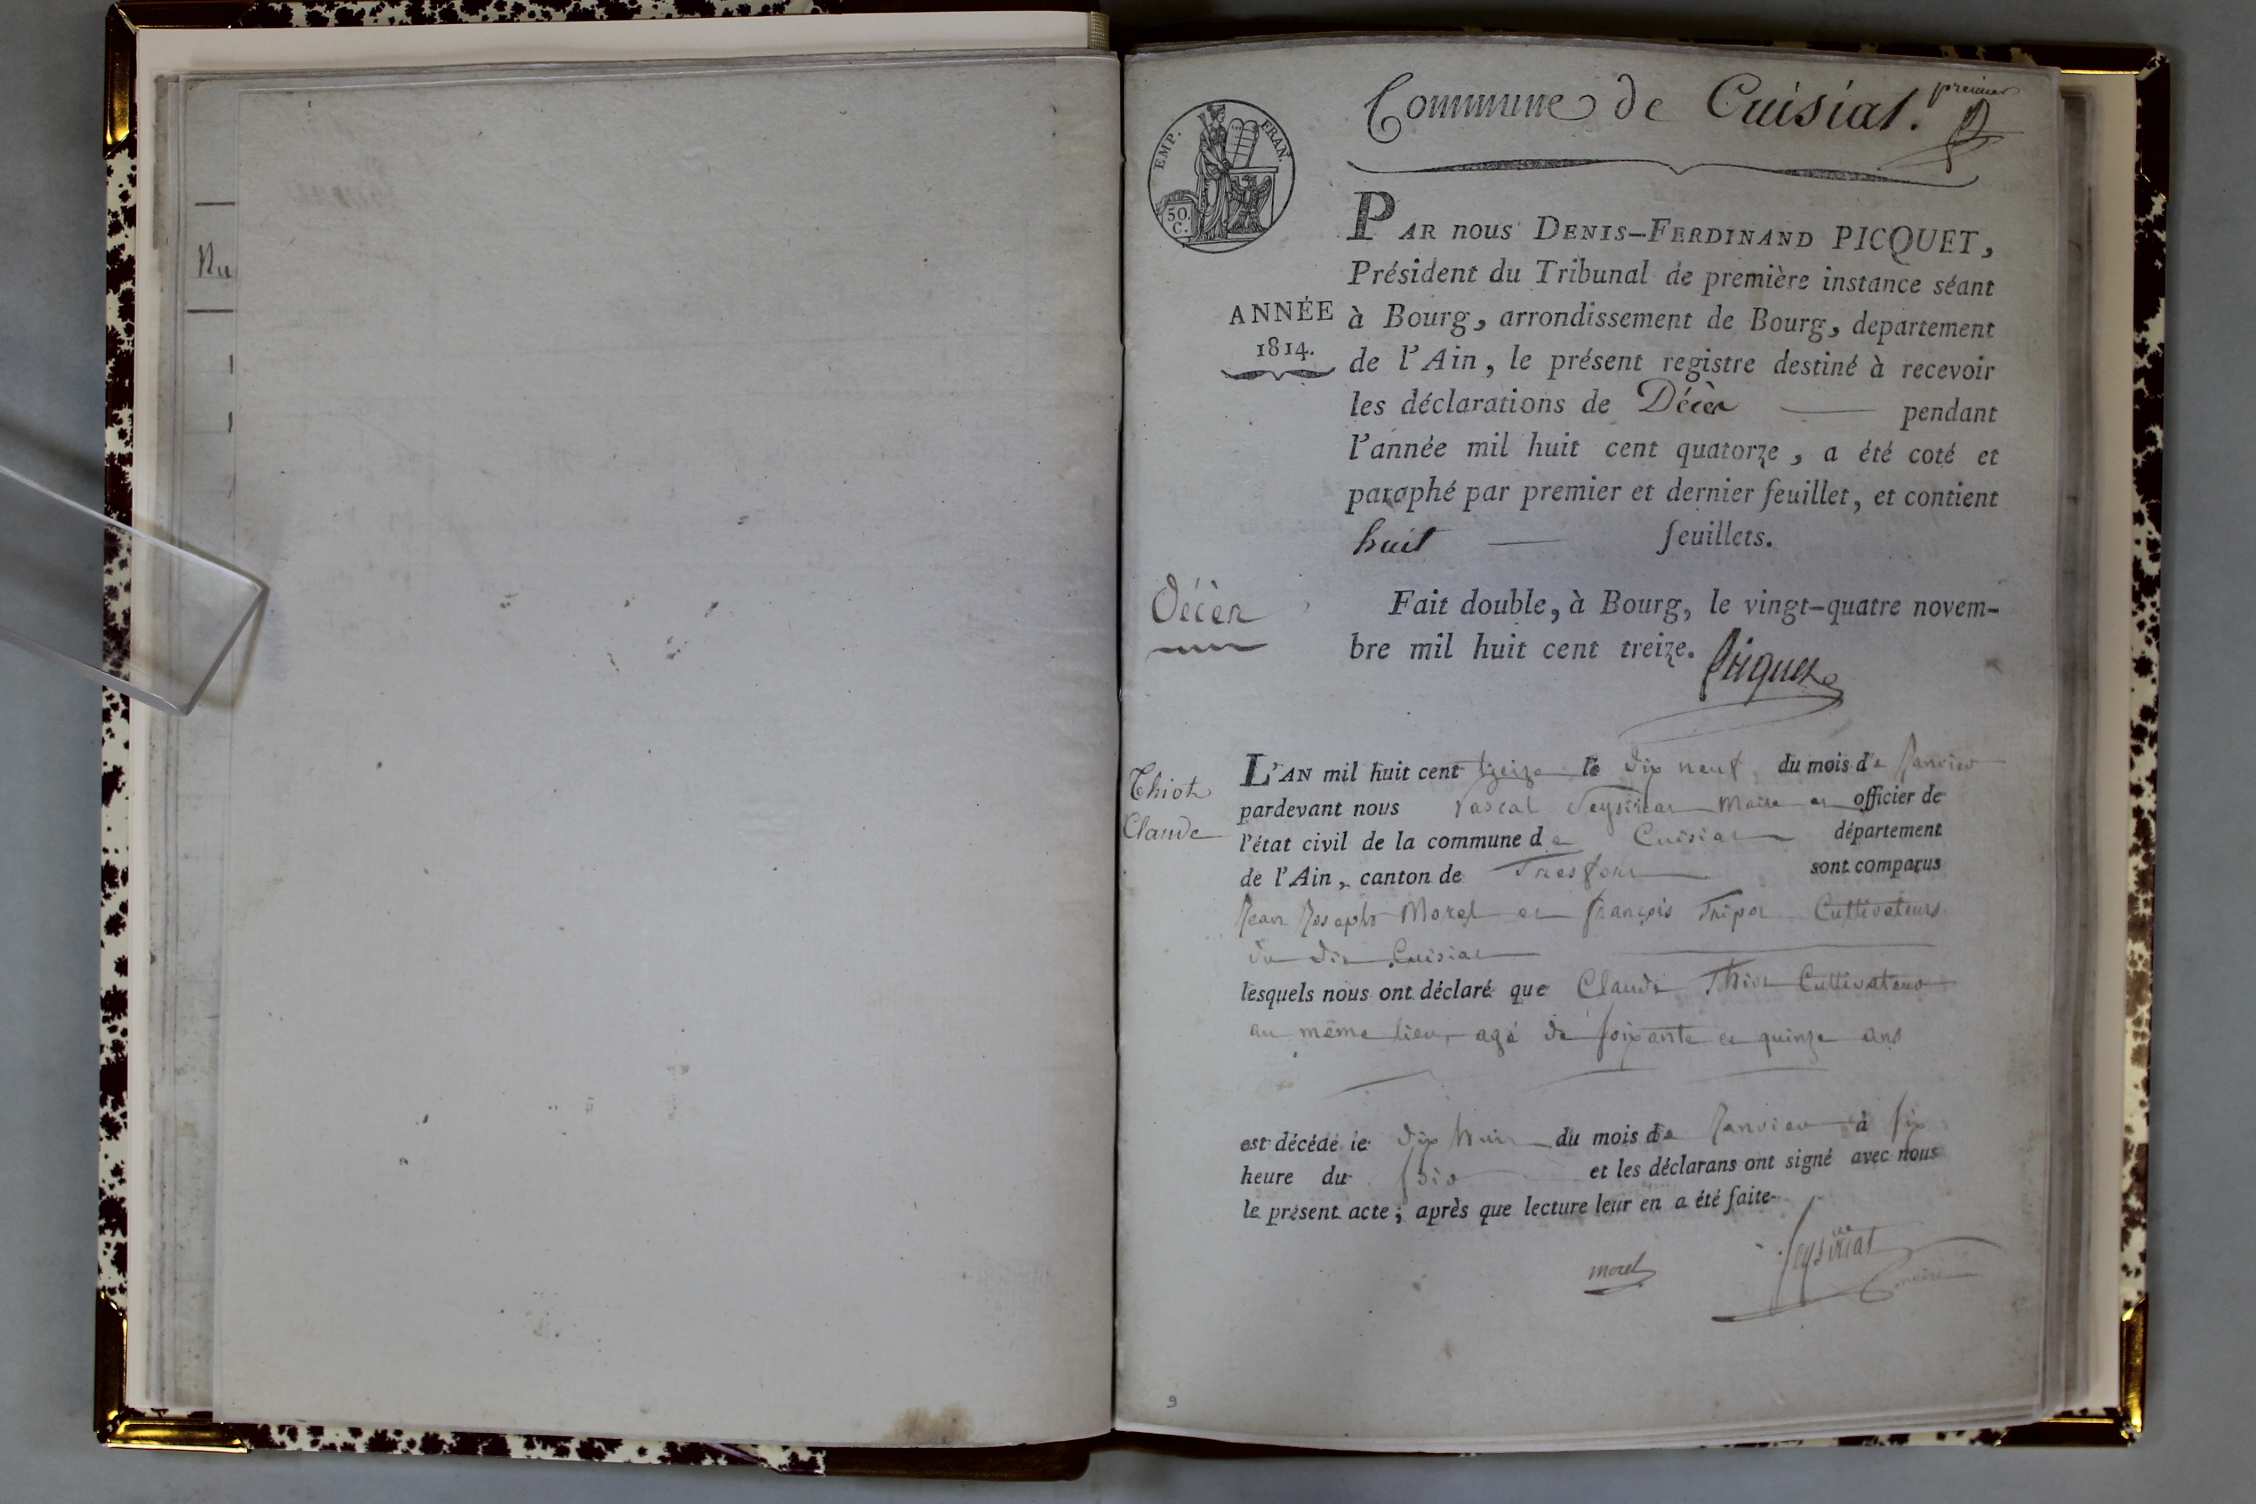 Nu
Commune de Cuisiat. premier
EMP. FRAN.
50. C.
PAR nous DENIS-FERDINAND PICQUET,
Président du Tribunal de première instance séant
ANNÉE
1814.
à Bourg, arrondissement de Bourg, departement
de l'Ain, le présent registre destiné à recevoir
les déclarations de Décès pendant
l'année mil huit cent quatorze, a été coté et
paraphé par premier et dernier feuillet, et contient
huit feuillets.
Décès
Fait double, à Bourg, le vingt-quatre novem-
bre mil huit cent treize. Picquet
Thiot
Claude
L'AN mil huit cent treize le dix neuf du mois de Janvier
pardevant nous Pascal Teyssiriat Maire et officier de
l'état civil de la commune de Cuisiat département
de l'Ain, canton de Treffort sont comparus
Jean Joseph Morel et françois Tripoz Cultivateurs
du dit Cuisiat
lesquels nous ont déclaré que Claude Thiot Cultivateur
au même lieu, agé de soixante et quinze ans
est décédé le dix huit du mois de Janvier à six
heure du soir et les déclarans ont signé avec nous
le présent acte, après que lecture leur en a été faite
morel
maire
9